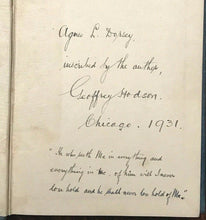 Agnes L. Dorsey
inscribed by the author,
Geoffrey Hodson.
Chicago. 1931.
"He who seeth Me in everything and
everything in Me, of him will I never
lose hold and he shall never lose hold of Me."